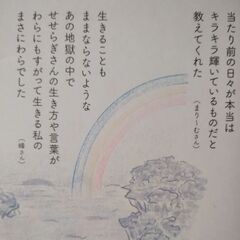 当たり前の日々が本当は
キラキラ輝いているものだと
教えてくれた
(まり〜むさん)
生きることも
ままならないような
あの地獄の中で
せせらぎさんの生き方や言葉が
わらにもすがって生きる私の
まさにわらでした
(峰さん)